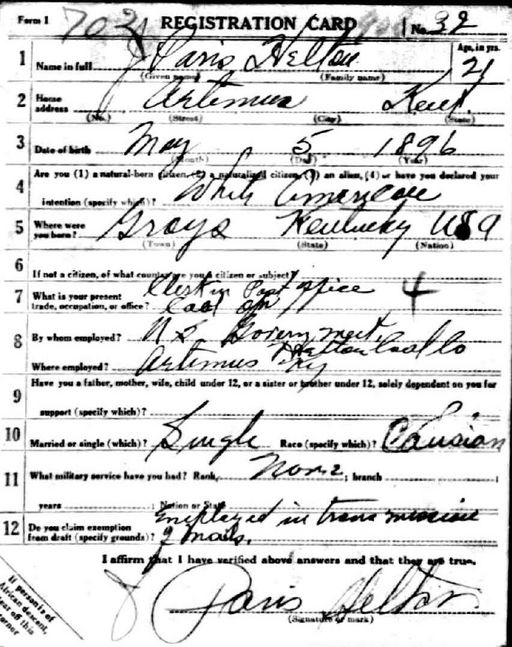 Form 1 703 REGISTRATION CARD No. 32
1 Name in full J Paris Helton Age, in yrs. 21
(Given name) (Family name)
2 Home address Artemus Kent.
(No.) (Street) (City) (State)
3 Date of birth May 5 1896
(Month) (Day) (Year)
4 Are you (1) a natural-born citizen, (2) a naturalized citizen, (3) an alien, (4) or have you declared your
intention (specify which)? White American
5 Where were you born? Grays Kentucky USA
(Town) (State) (Nation)
6 If not a citizen, of what country are you a citizen or subject?
7 What is your present trade, occupation, or office? Clerk in Post office 4
Coal opr
8 By whom employed? U.S. Government, Helton Coal Co
Where employed? Artemus Ky
9 Have you a father, mother, wife, child under 12, or a sister or brother under 12, solely dependent on you for
support (specify which)?
10 Married or single (which)? Single Race (specify which)? Causian
11 What military service have you had? Rank None ; branch ;
years ; Nation or State
12 Do you claim exemption from draft (specify grounds)? Employed in
mails.
I affirm that I have verified above answers and that they are true.
J Paris Helton
(Signature or mark)
If person is of
African descent,
tear off this
corner